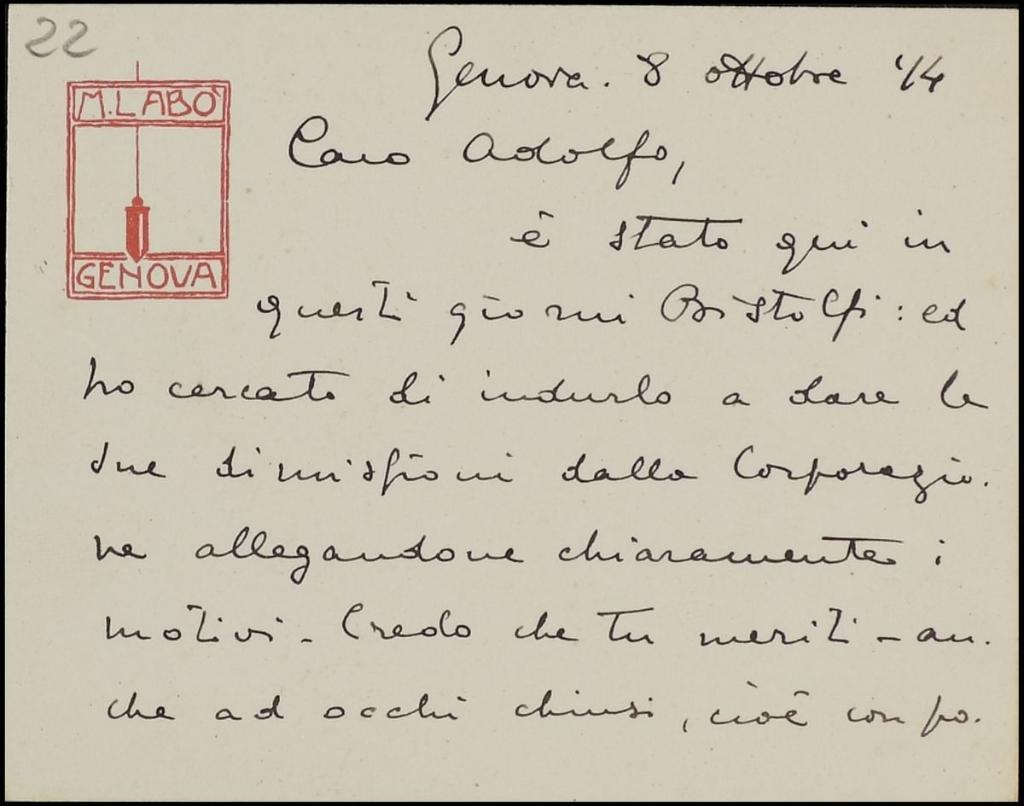 22
M. LABÒ
GENOVA
Genova. 8 ottobre '14
Caro Adolfo,
è stato qui in
questi giorni Bistolfi: ed
ho cercato di indurlo a dare le
sue dimissioni dalla Corporazio-
ne allegandone chiaramente i
motivi - Credo che tu meriti - an-
che ad occhi chiusi, cioè con po-